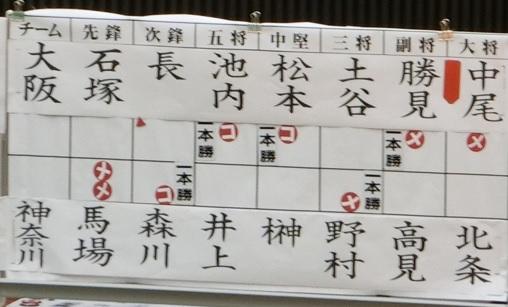 チーム 先鋒 次鋒 五将 中堅 三将 副将 大将
大阪 石塚 長 池内 松本 土谷 勝見 中尾
一本勝 コ 一本勝 コ 一本勝 メ メ
メメ コ 一本勝 メ 一本勝
神奈川 馬場 森川 井上 榊 野村 高見 北条